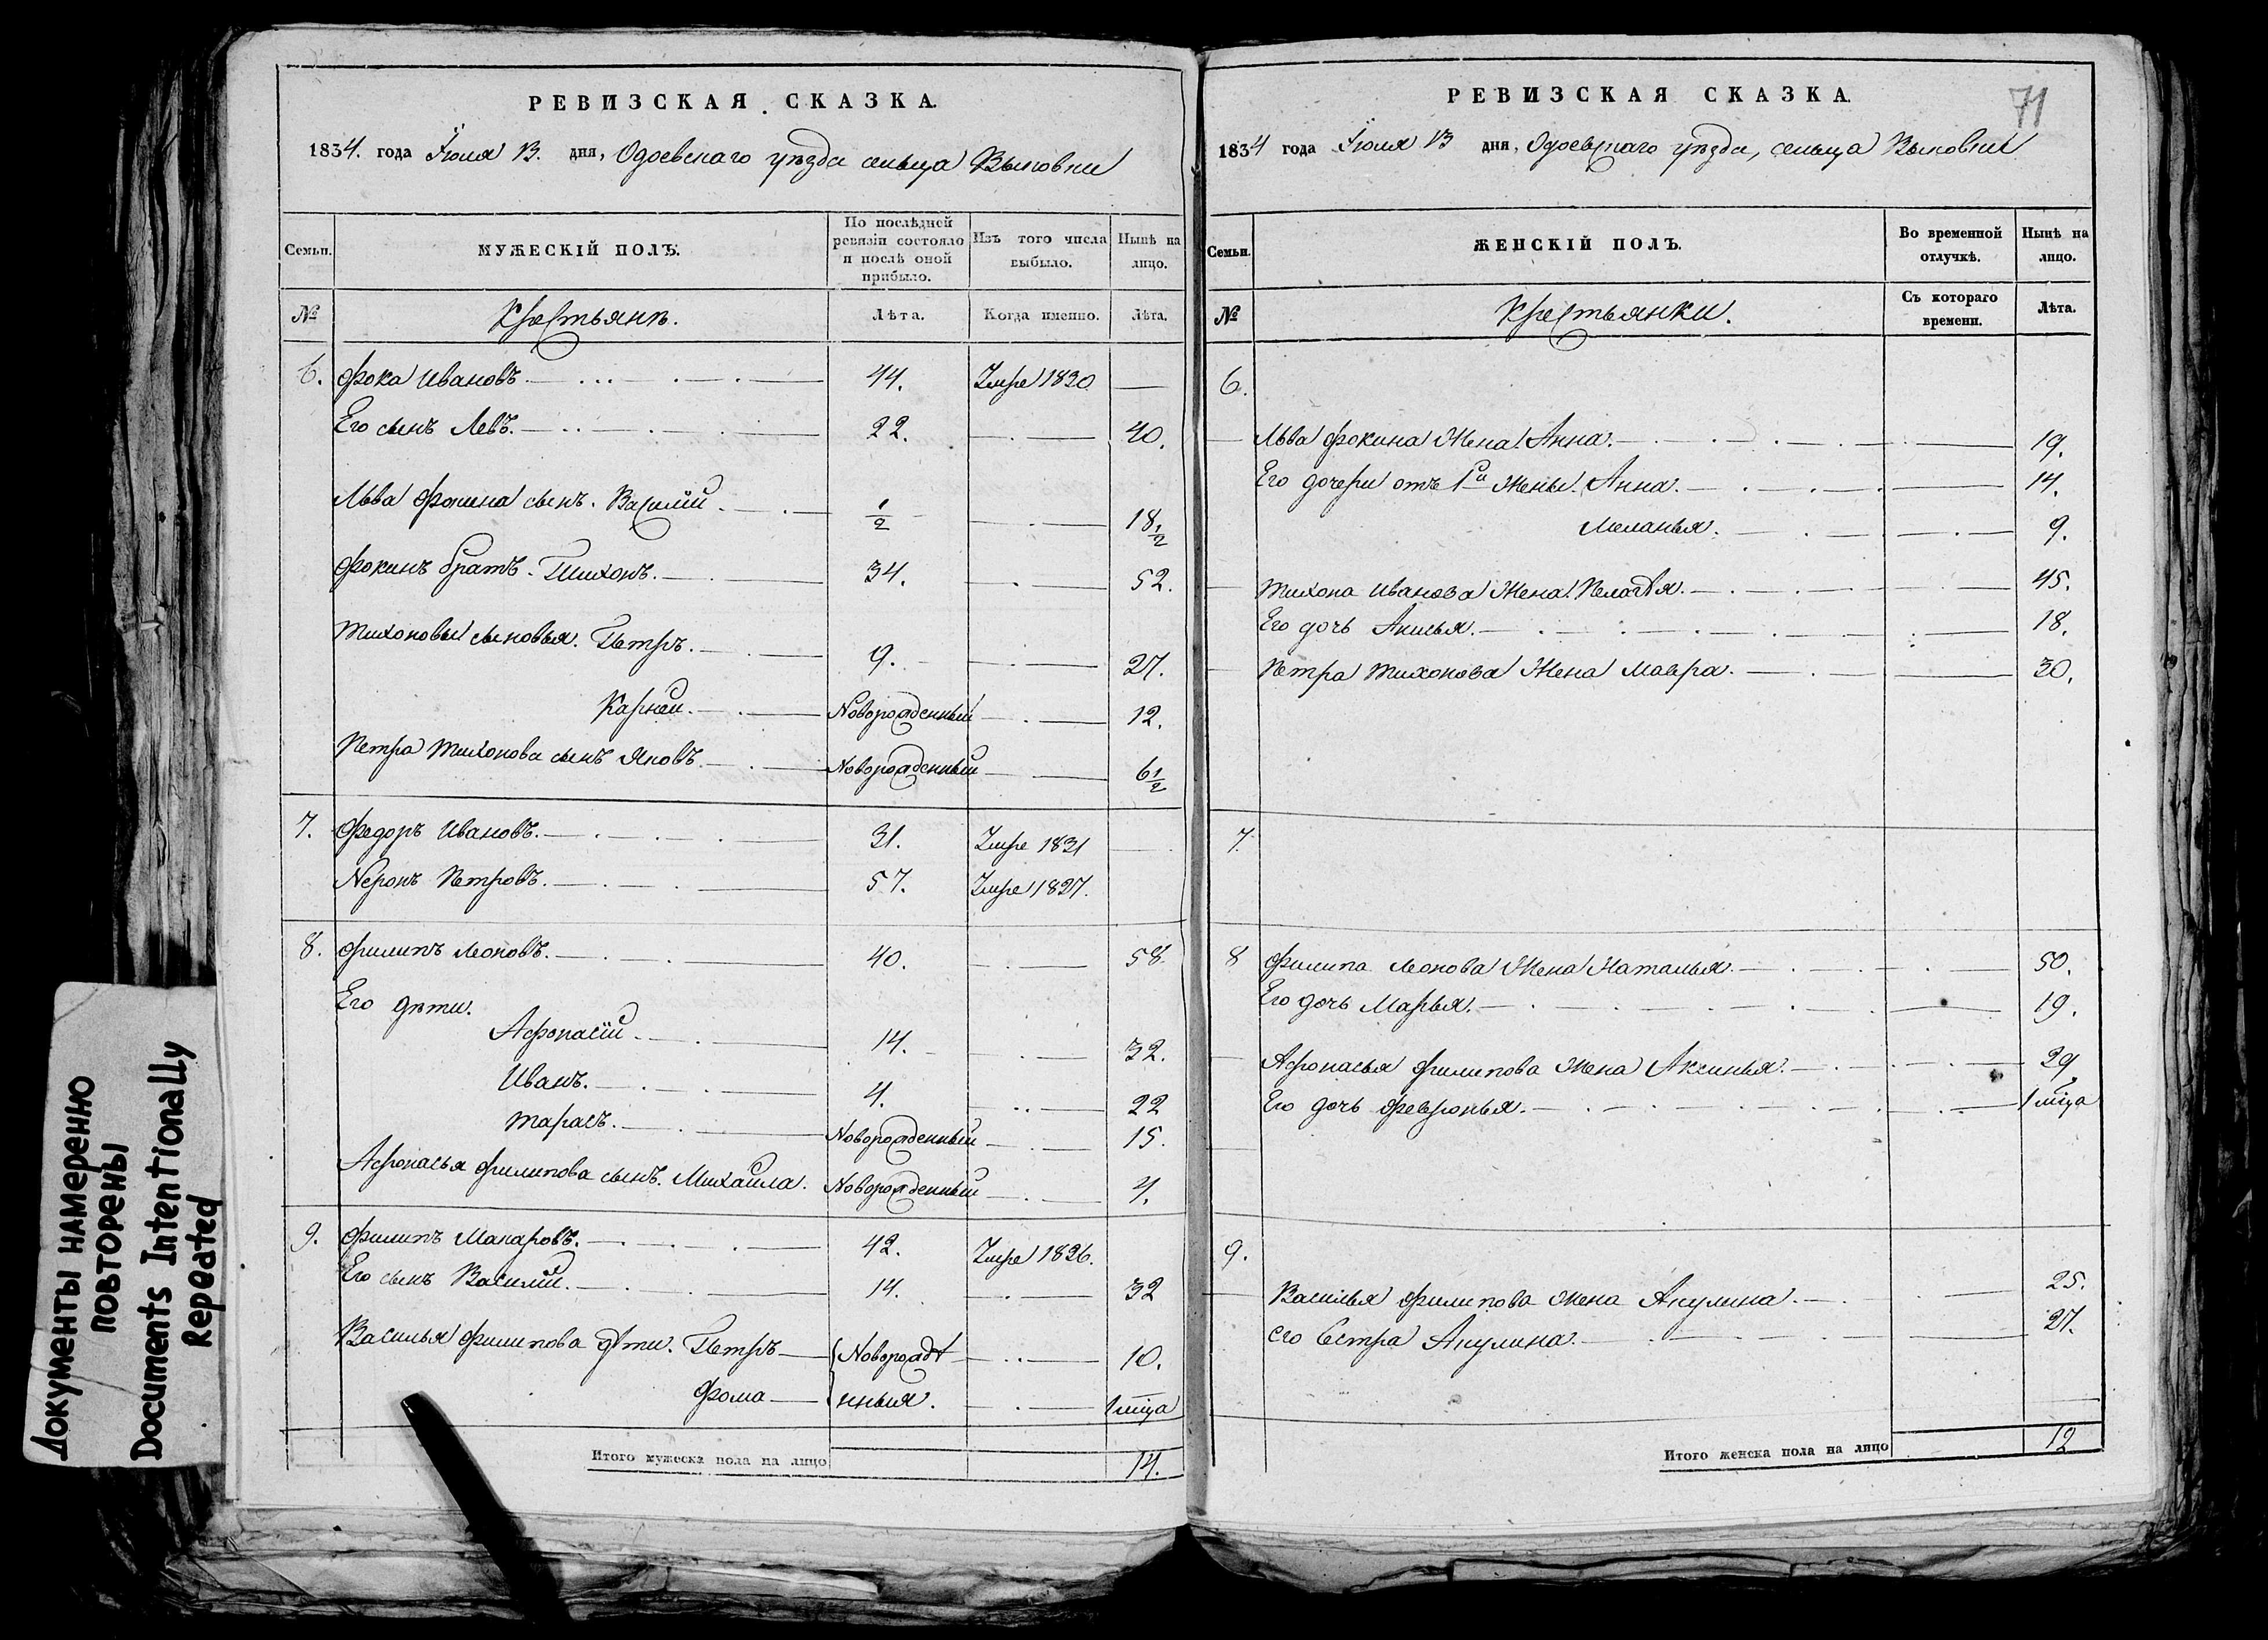 Документы намеренно
повторены
Documents Intentionally
Repeated
РЕВИЗСКАЯ СКАЗКА.
1834. года Іюля 13. дня, Одоевскаго уѣзда сельца
Семьи.
МУЖЕСКІЙ ПОЛЪ.
По послѣдней ревизіи состояло и послѣ оной прибыло.
Изъ того числа выбыло.
Нынѣ на лицо.
№
Крестьянѣ.
Лѣта.
Когда именно.
Лѣта.
6. Фока Ивановъ. 44. Умре 1820 —
Его сынъ Левъ. 22. — 40.
Льва Фокина сынъ. Василій. 1/2 — 18 1/2
Фокинъ братъ. Тихонъ. 34. — 52.
Тихоновы сыновья. Петръ. 9. — 27.
Карней. Новорожденный — 12.
Петра Тихонова сынъ Яковъ. Новорожденный — 6 1/2
7. Федоръ Ивановъ. 31. Умре 1831 —
Петровъ. 57. Умре 1827.
8. Филипъ Леоновъ. 40. — 58.
Его дѣти.
Афонасій. 14. — 32.
Иванъ. 4. — 22
Тарасъ. Новорожденный — 15.
Афонасья Филипова сынъ. Михайла. Новорожденный — 4.
9. Филипъ Макаровъ. 42. Умре 1826.
Его сынъ Василій. 14. — 32
Василья Филипова дѣти. Петръ — Новорождѣ — 10.
Фома — нныя. — 1 мца
Итого мужеска пола на лицо 14.
РЕВИЗСКАЯ СКАЗКА.
71
1834 года Іюля 13 дня, Одоевскаго уѣзда, сельца
Семьи.
ЖЕНСКІЙ ПОЛЪ.
Во временной отлучкѣ.
Нынѣ на лицо.
№
Крестьянки.
Съ котораго времени.
Лѣта.
6.
Льва Фокина Жена. Анна. 19.
Его дочери отъ 1й Жены. Анна. 14.
Меланья. 9.
Тихона Иванова Жена. Пелагѣя. 45.
Его дочь Акилья. 18.
Петра Тихонова Жена Мавра. 30.
7.
8 Филипа Леонова Жена Наталья. 50.
Его дочь Марья. 19.
Афонасья Филипова Жена Аксинья. 29
Его дочь Февронья. 1 мца
9.
Василья Филипова Жена Акулина. 25.
его Сестра Акулина. 27.
Итого женска пола на лицо 12